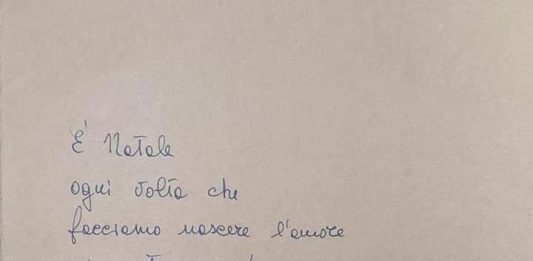 É Natale
ogni volta che
facciamo nascere l'amore